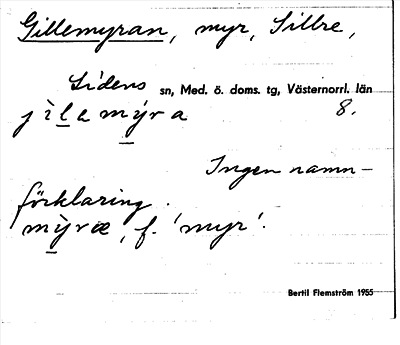 Gillemyran, myr, Sillre,
Lidens sn, Med. ö. doms. tg, Västernorrl. län
jìlemýra 8.
Ingen namn-
förklaring.
mỳræ, f. 'myr'.
Bertil Flemström 1955